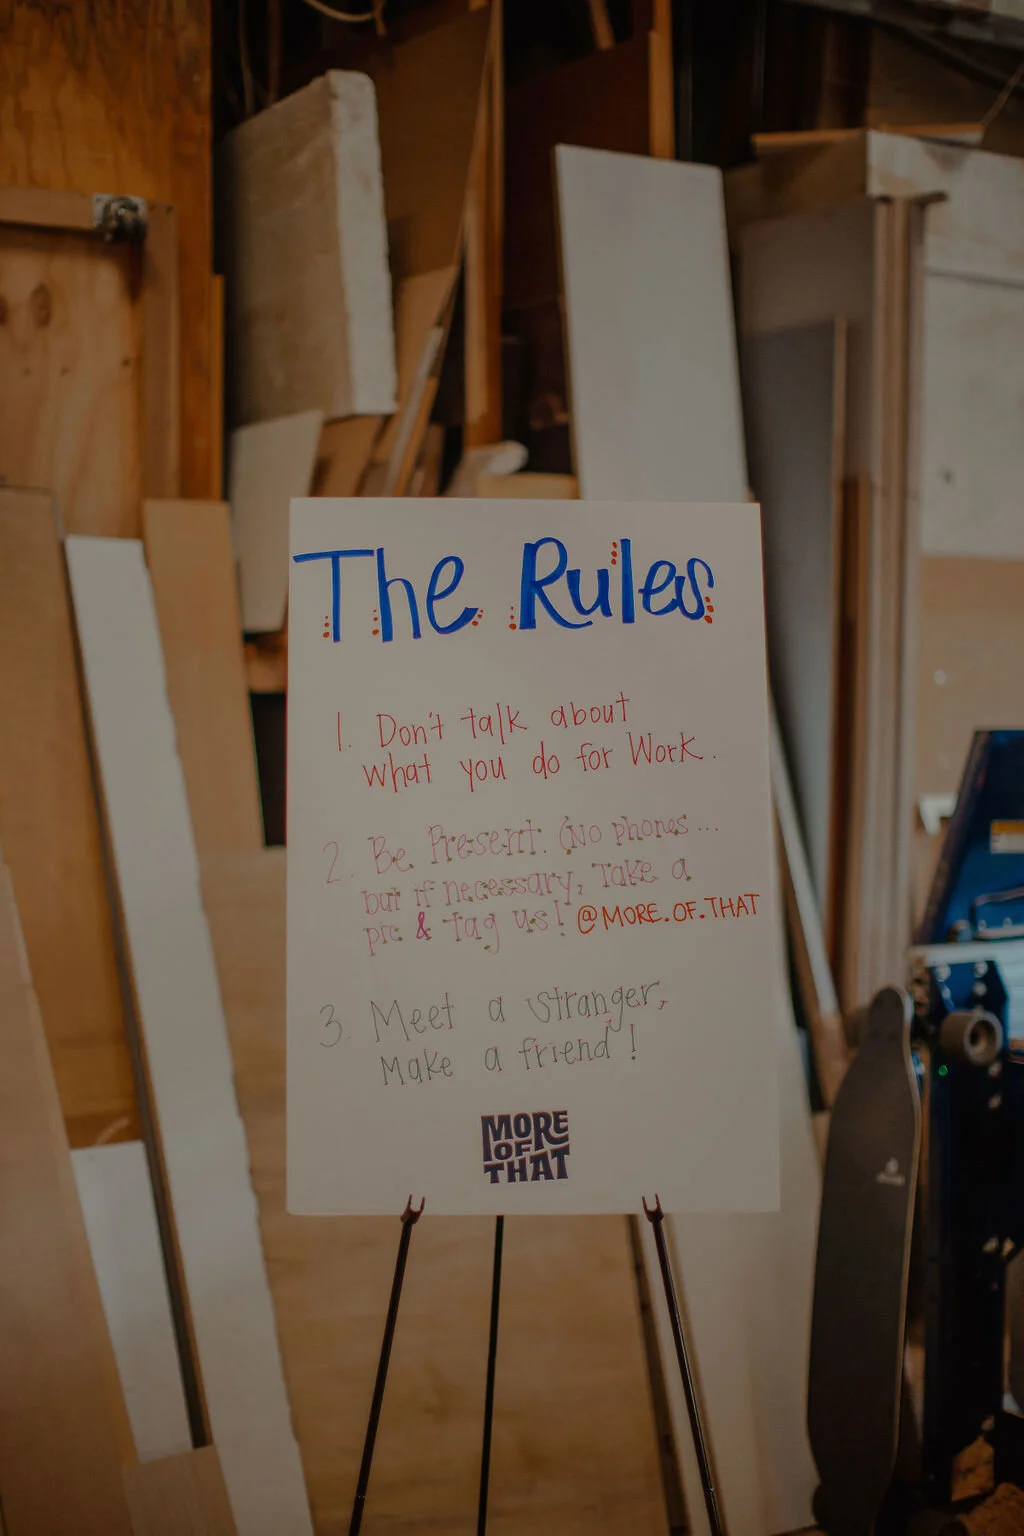 The Rules
1. Don't talk about
what you do for Work.
2. Be Present. (No phones...
but if necessary, Take a
pic & tag us! @MORE.OF.THAT
3. Meet a stranger,
Make a friend!
MORE
OF
THAT